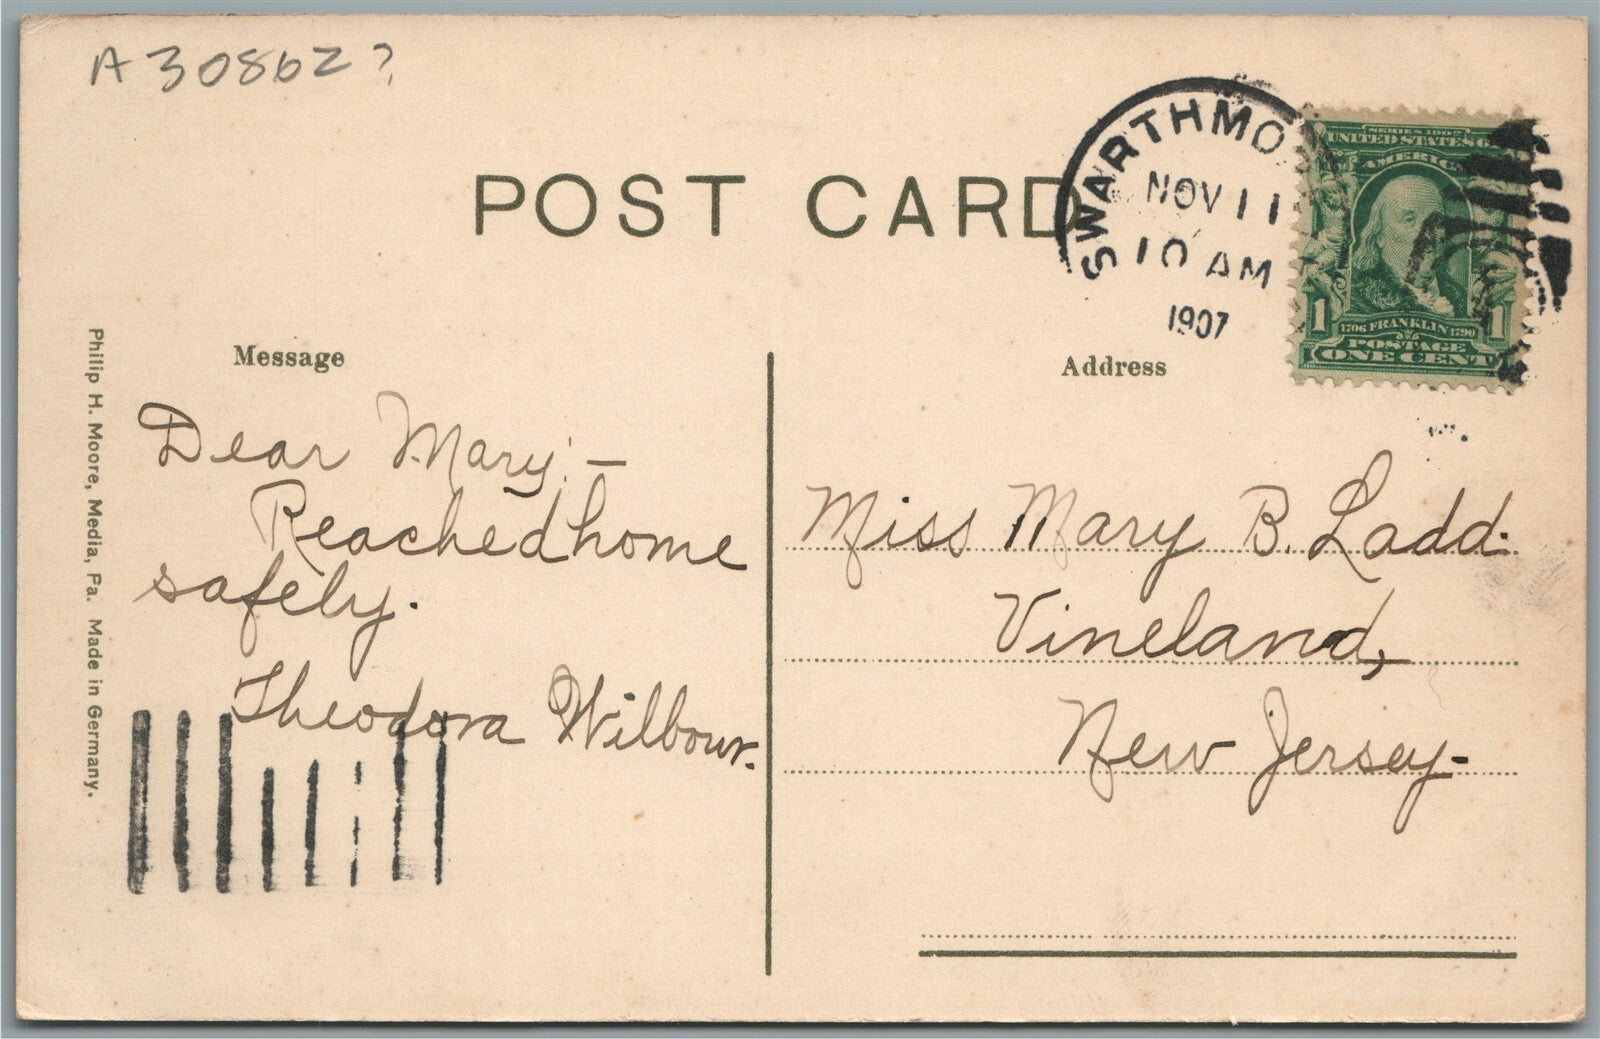 A30862?
POST CARD
SWARTHMO
NOV 11
10 AM
1907
SERIES 1902
UNITED STATES O
AMERICA
1 1
1706 FRANKLIN 1790
POSTAGE
ONE CENT
Message
Address
Dear Mary:—
Reached home
safely.
Theodora Wilbour.
Miss Mary B. Ladd.
Vineland,
New Jersey-
Philip H. Moore, Media, Pa. Made in Germany.